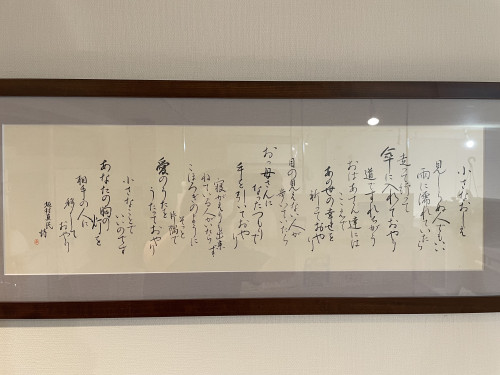 小さなおしえ
見しらぬ人でもいい
雨に濡れていたら
走って行って
傘に入れておやり
道ですれちがう
おばあさん達には
あの世の幸せを
祈っておやり
目の見えない人が
いたら
お母さんに
なったつもりで
手を引いておやり
寝がえりも出来ず
ねている人がいたら
こほろぎのように
そっと片隅で
愛のうたを
うたっておやり
小さなことで
いいのです
あなたの胸の
灯を
相手の人に
移しておやり
坂村真民 詩